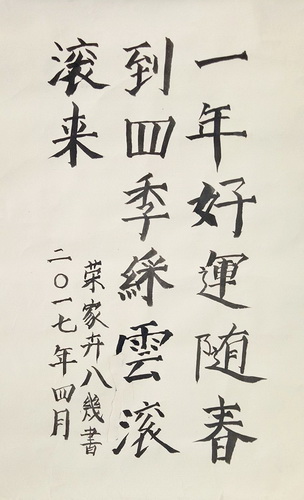 一年好運随春
到四季綵雲滚
滚来
荣家卉八幾書
二〇一七年四月